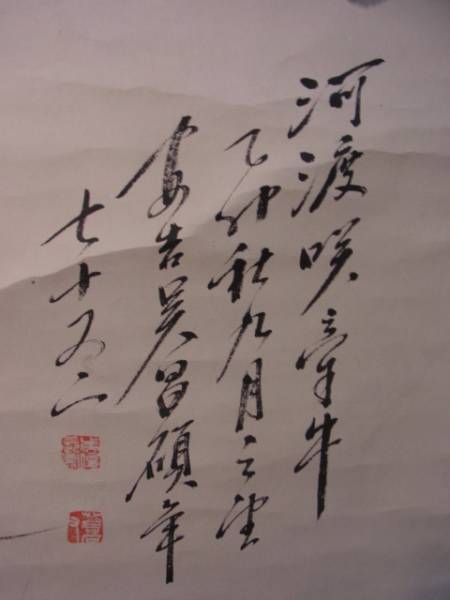 河渡咲牽牛
乙卯秋九月之望
安吉吳昌碩年
七十又二